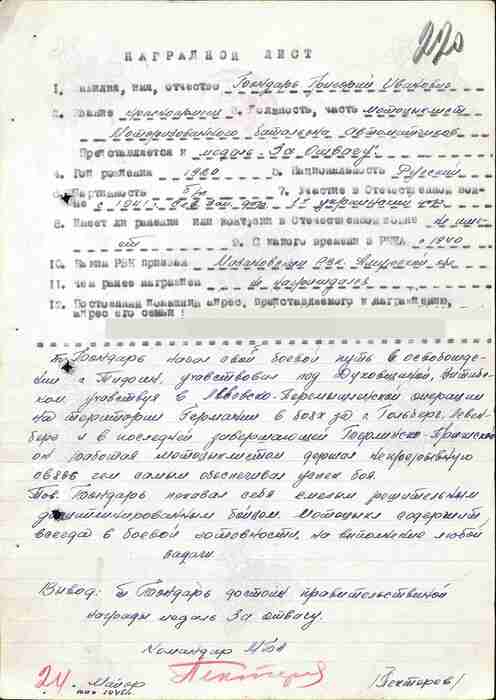 220
НАГРАДНОЙ ЛИСТ
1. Фамилия, имя, отчество Гончарь Григорий Иванович
2. Звание красноармеец 3. Должность, часть мотоциклист
Моторизованного батальона Автоматчиков
Представляется к медаль "За Отвагу"
4. Год рождения 1920 5. Национальность Русский
6. Партийность б/п 7. Участие в Отечественной вой-
не с 1941 1й украинский
8. Имеет ли ранения или контузии в Отечественной войне не име-
ет 9. С какого времени в РККА с 1940
10. Каким РВК призван РВК
11. чем ранее награжден не награждался
12. Постоянный домашний адрес, представляемого к награждению,
адрес его семьи:
т. начал свой боевой путь в освобожде-
нии г. участвовал под Духовщиной,
участвуя в Львовско-Перемышленской операции
на территории Германии в боях за г.
и в последней завершающей
он работая мотоциклистом держал непрерывную
связь чем самым обеспечивал успех боя.
Тов. показал себя смелым решительным
дисциплинированным бойцом. Мотоцикл содержит
всегда в боевой готовности, на выполнение любой
задачи.
Вывод: т. достоин правительственной
награды медаль За отвагу.
Командир МБА
24. Майор